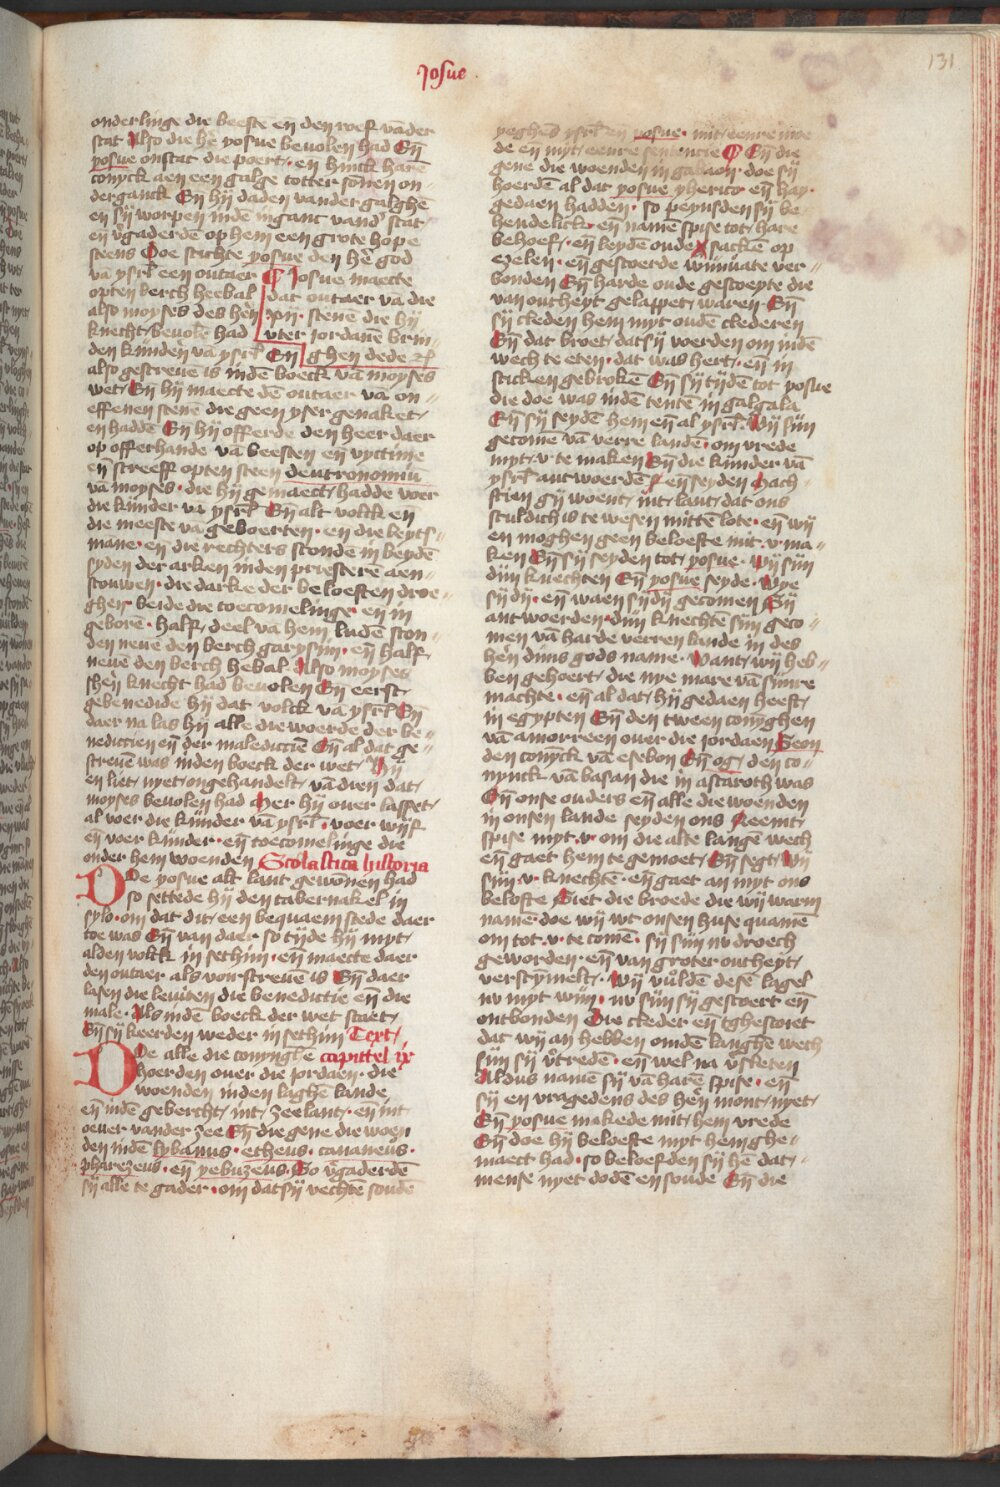 Josue
131
onderlinge die beeste en̄ den roef vād̉er
stat Also die hē yosue beuolen had En̄
yosue onstac die poert, en̄ hinck haren
conyck aen een galge totter sōnen on„
derganck En̄ hij daden vander galghē
en̄ sij worpen indē inganc vand̉ stat,
en̄ v̉gaderdē op hem een grote hope
steens Doe stichte yosue den hē god
vā ysrl̄ een outaer
opten berch heebal
also moyses des hēn
knecht, beuolē had
den kindēn vā ysrl̄ En̄
¶ Josue maecte
dat outaer vā die
.xij. stenē die hij
vter jordanē brin„
ghen dede
also gescreuē is indē boeck vā moyses
wet, En̄ hij maecte dē outaer vā on„
effenen stenē die geen yser genaket,
en haddē En̄ hij offerde den heer daer
op offerhande vā beesten en̄ vyctime
en̄ screeff opten steen deutronomiū
vā moyses. die hij gemaect, hadde voer
die kinder vā ysrl̄ En̄ alt volck en̄
die meeste vā geboerten. en̄ die leyts„
mane. en̄ die rechters stonden in beydē
syden der arken inden priesterē aen„
scouwen. die darke der beloeften droe„
ghen beide die toecomelinge en̄ in
geborē. half, deel vā hem ludē ston„
den neuē den berch garysim. en̄ half
neuē den berch hebal. Also moyses
shēn knecht had beuolen En̄ eerst,
gebenedide hij dat volck vā ysrl̄ En̄
daer na las hij alle die woerde der be„
nedictien en̄ der maledictiē En̄ al dat ge„
screuē was inden boeck der wet, Hij
en liet, nyet, ongehandelt, vā dien dat,
moyses beuolen had Mer hij ouer lasset,
al voer die kinder vā ysrl̄. voer wijf
en̄ voer kinder. en̄ toecomelinge die
onder hem woenden Scolastica historia
Doe yosue alt lant gewōnen had
so settede hij den tabernakel in
sylo. om dat dit, een bequaem stede daer
toe was En̄ van daer so tijde hij myt,
alden volck in sethim. en̄ maecte daer
den outaer als vorscreuē is En̄ daer
lasen die leuiten die benedictie en̄ die
male. Als indē boeck der wet staet,
En̄ sij keerden weder in sethim Text,
Doe alle die conyngē capittel ix
hoerden ouer die jordaen. die
woenden inden laghen lande
en̄ indē gebercht, int, zeelant. en̄ int
oeuer vander zee En̄ die gene die woen
den indē lybanus. etheus. cananeus.
pharezeus. en̄ yebuzeus. So v̉gaderdē
sij alle te gader. om dat sij vechtē soudē
yeghēs ysrl̄ en̄ yosue. mit, eenre moe
de en̄ myt, eenre sentencie ¶ En̄ die
gene die woenden in gabaon. doe sij
hoerdē al dat yosue yherico en̄ hay.
gedaen hadden. so peynsden sij be„
hendelick. en̄ namē spise tot, hare
behoef, en̄ leyden oude sacken op
eselen. en̄ gescoerde wijnuate ver„
bonden En̄ harde oude gescoeyte die
van outheyt gelappet, waren En̄
sij cleden hem myt oudē clederen
En̄ dat broet, dat sij voerden om indē
wech te eten. dat was hert, en̄ in
sticken gebrokē En̄ sij tijdē tot yosue
die doe was indē tentē in galgala
En̄ sij seydē hem en̄ al ysrl̄. Wij sijn
gecome vā verre landē. om vrede
myt, v te maken En̄ die kinder vā
ysrl̄ antwoerdē, en̄ seyden Mach„
scien gij woent, int, lant, dat ons
sculdich is te wesen mittē lote. en̄ wij
en moghen geen beloefte mit. v. ma„
ken En̄ sij seyden tot, yosue. Wij sijn
dijn knechten En̄ yosue seyde. Wye
sij dij. en̄ waen sijdij gecomen Sij
antwoerden. dijn knechten sijn geco„
men vā harde verren lande in des
hēn dijns gods name. Want, wij heb„
ben gehoert, die nye mare vā sijnre
machte. en̄ al dat, hij gedaen heeft,
in egypten En̄ den tween conyghen
vā amorreen ouer die jordaen Seon
den conyck vā esebon En̄ og, den co„
nynck vā basan die in astaroth was
En̄ onse ouders en̄ alle die woenden
in onsen lande seyden ons Neemt,
spise myt. v. om die alte langē wech
en̄ gaet hem te gemoet, En̄ segt, Wij
sijn v. knechtē. en̄ gaet an myt ons
belofte Siet die broede die wij warm
namē. doe wij wt onsen huse quamē
om tot. v. te comē. sij sijn nv droech
geworden. en̄ van groter outheyt,
verscymelt. Wij vuldē desē lagel
nv myt wijn. nv sijn sij gescoert en̄
ontbonden Die cleder en̄ tghescoiet
dat wij an hebben omdē langhē wech
sijn sij v̉tredē. en̄ wel na v̉sleten
Aldus namē sij vā harē spise. en̄
sij en vragedens des hēn mont, nyet,
En̄ yosue makede mit, hem vrede
En̄ doe hij beloefte myt hem ghe„
maect had. so beloefden sij hē dat,
mense nyet dodē en soude En̄ die